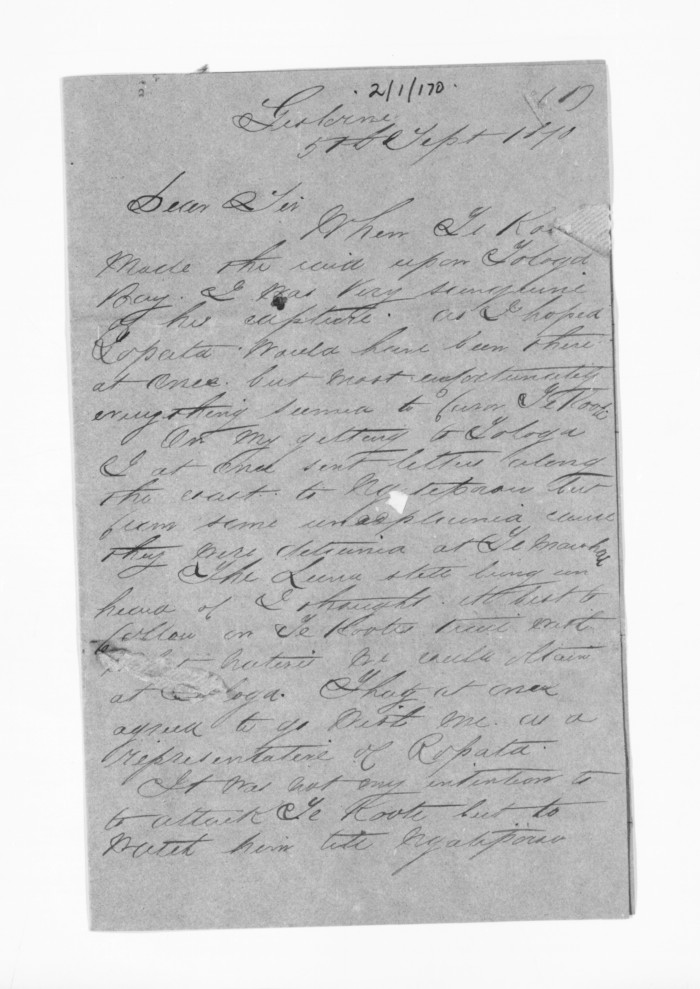 2/1/170.
Gisborne
5th Sept 1870
Dear Sir
When Te Koo
Made the raid upon Tologa
Bay. I was very sanguine
of his capture. as I hoped
Ropata would have been there
at once. but most unfortunately
everything seemed to favor Te Kooti
On my getting to Tologa
I at once sent letters along
the coast to Ngatiporou but
from some unexplained cause
they were detained at Te
The Luna still being un
heard of I thought it best to
follow on Te Kootis trail with
natives we could obtain
at Tologa. They at once
agreed to go with me. as a
representative of Ropata.
It was not my intention to
to attack Te Kooti but to
watch him till Ngatiporou